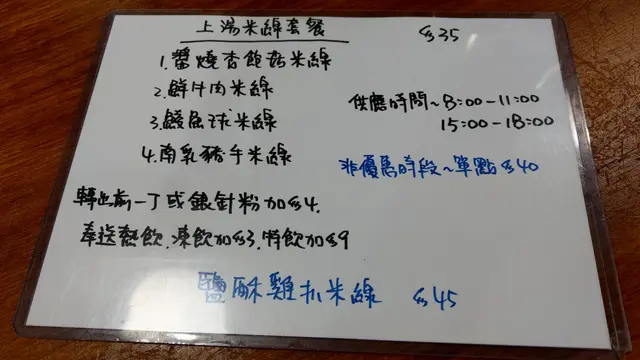 上湯米線套餐 $35
1.醬燒杏鮑菇米線
2.鮮牛肉米線
3.鯪魚球米線
4.南乳豬手米線
供應時間~8:00-11:00
15:00-18:00
非優惠時段~單點$40
轉出前一丁或銀針粉加$4.
奉送熱飲.凍飲加$3.特飲加$9
鹽酥雞扒米線 $45